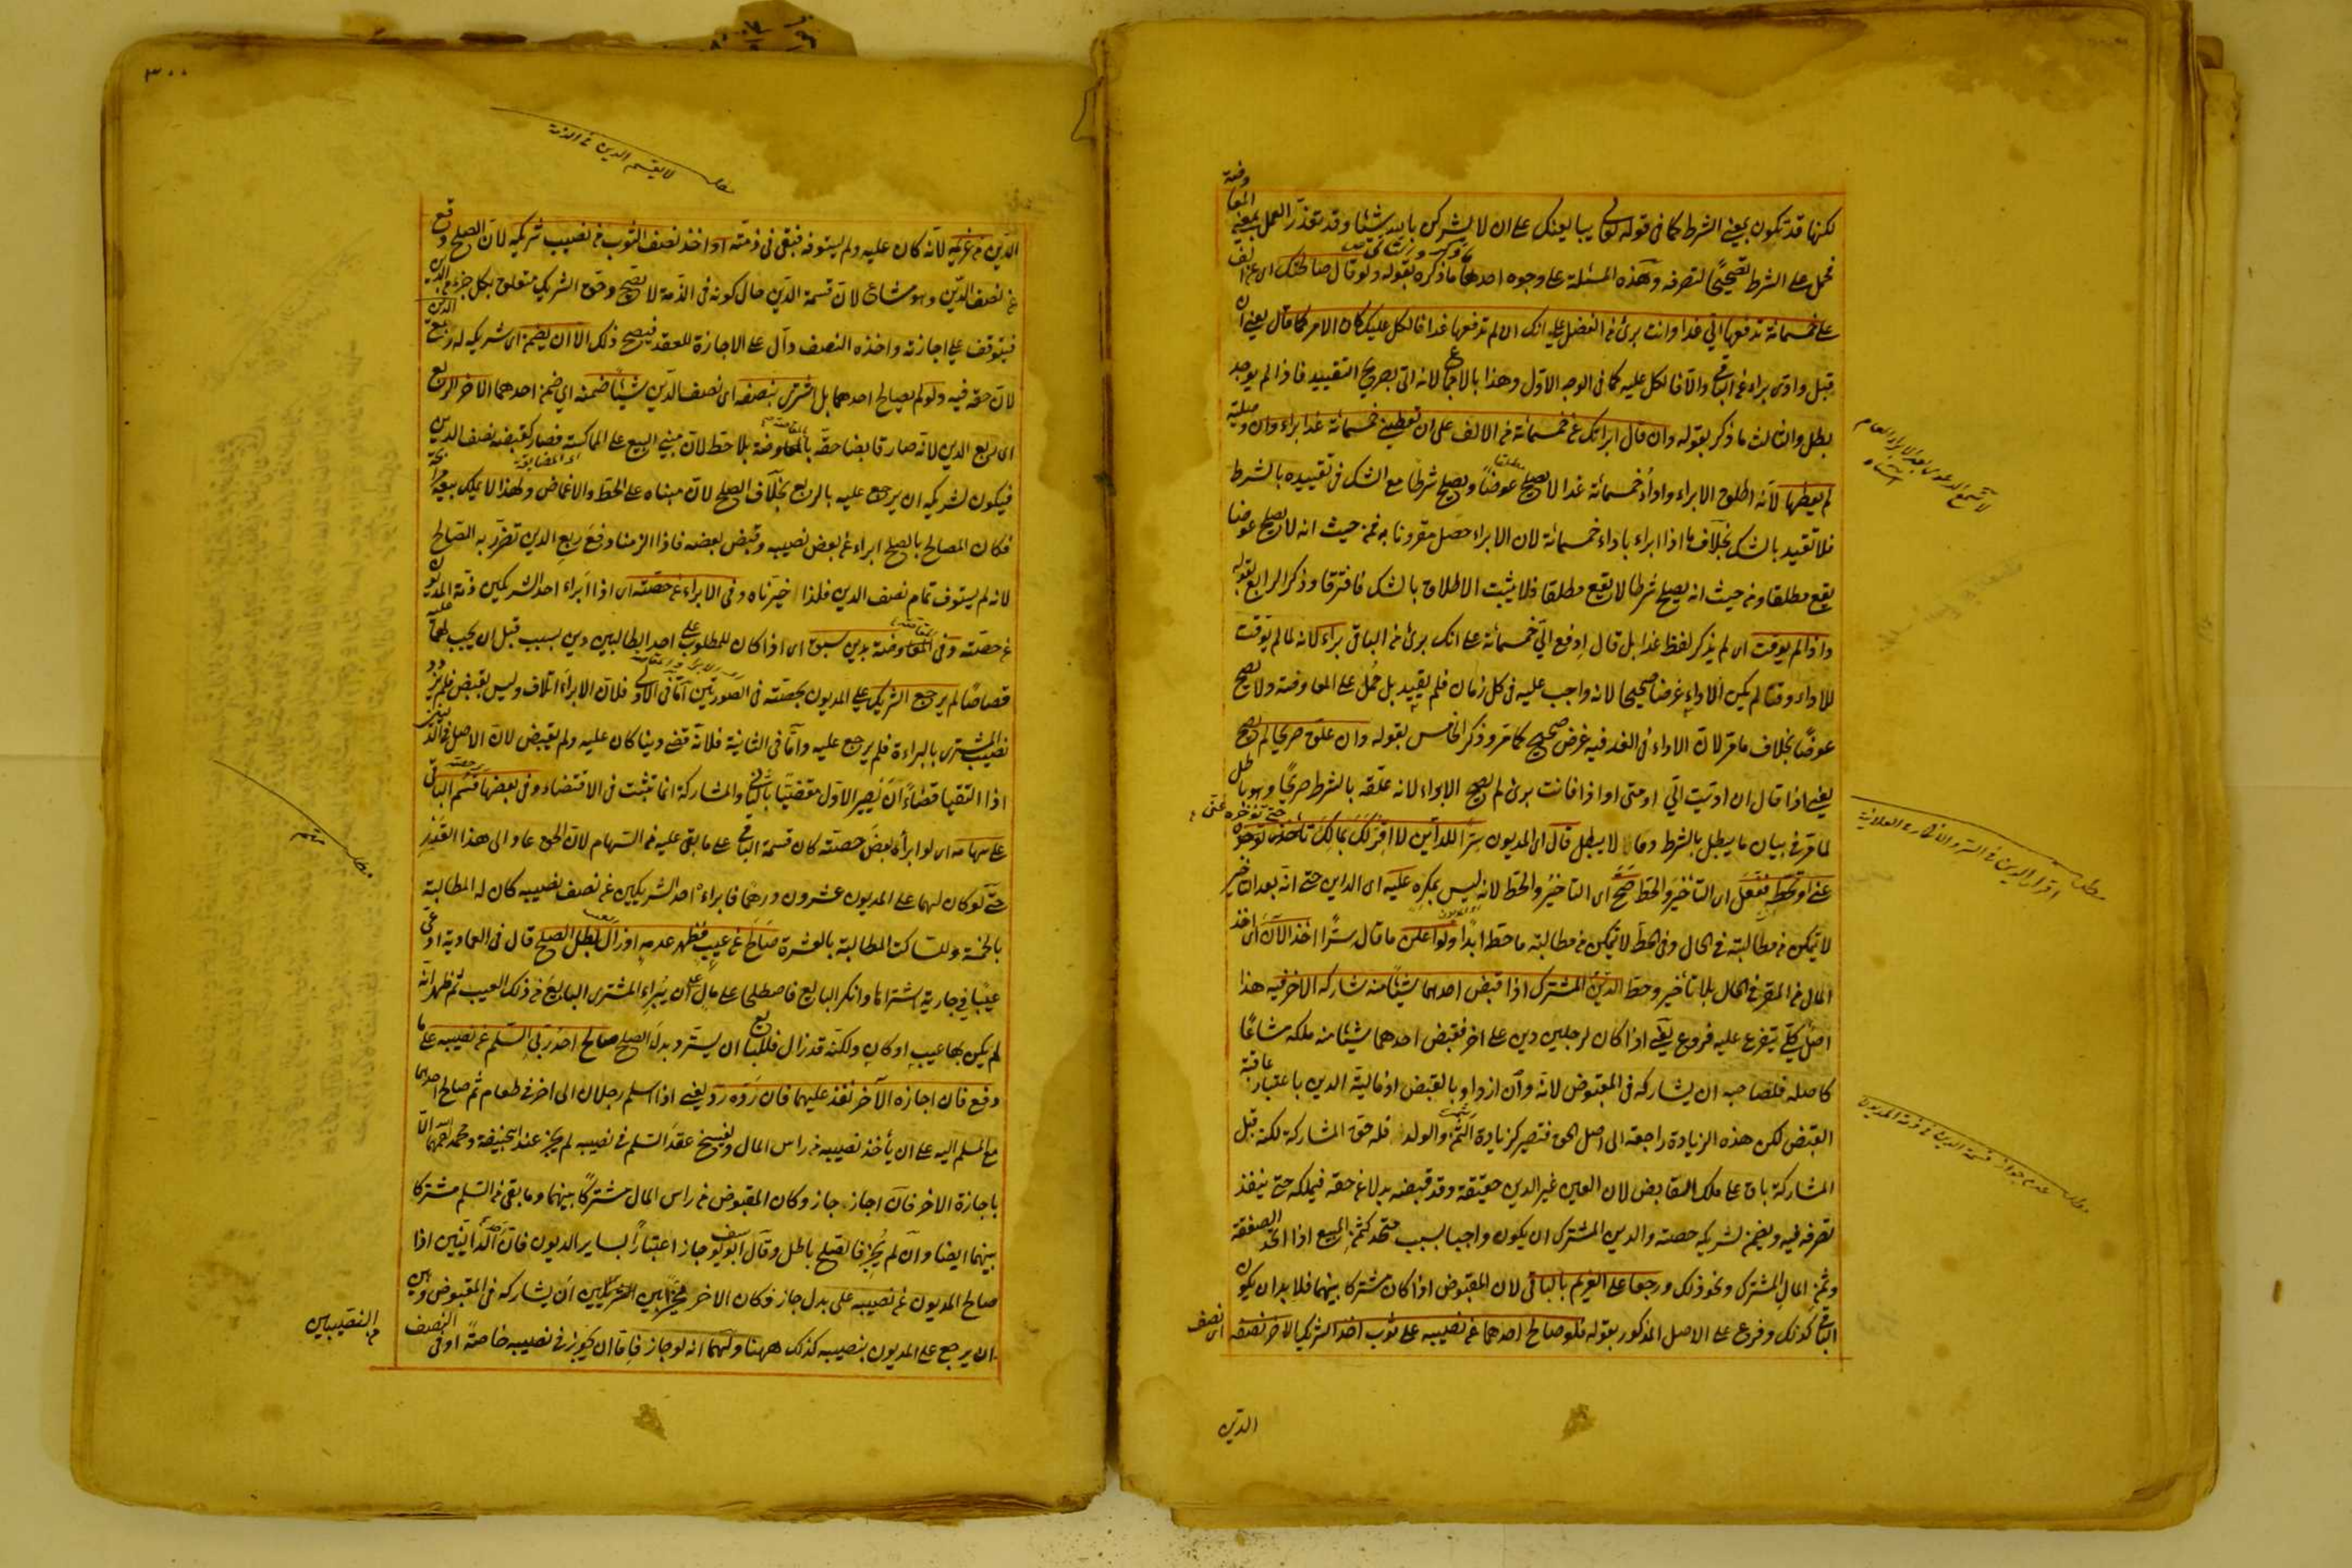 لكنها قد تكون بمعنى الشرط كما في قوله تعالى يبايعنك على ان لا يشركن بالله شيئا وقد تعذر العمل بمعنى المعاوضة
فحمل على الشرط تصحيحا لتصرفه وهذه المسئلة على وجوه احدها ما ذكره بقوله ولو قال صالحتك اي عن الف
على خمسمائة تدفعها الي غدا وانت برئ من الفضل على انك ان لم تدفعها غدا فالكل عليك كان الامر كما قال يعني ان
قبل وادى برئ عن الباقي والا فالكل عليه كما في الوجه الاول وهذا بالاجماع لانه اتى بصريح التقييد فاذا لم يوجد
بطل والثالث ما ذكر بقوله وان قال ابرأتك عن خمسمائة من الالف على ان تعطيني خمسمائة غدا براء وان وصلية
لم يعطها لانه اطلق الابراء واداء خمسمائة غدا لا يصلح عوضا ويصلح شرطا مع الشك في تقييده بالشرط
فلا تقييد بالشك بخلاف ما اذا ابراء باداء خمسمائة لان الابراء حصل مقرونا به فمن حيث انه لا يصلح عوضا
يقع مطلقا ومن حيث انه يصلح شرطا لا يقع مطلقا فلا يثبت الاطلاق بالشك فافترقا وذكر الرابع بقوله
واذا لم يوقت اي لم يذكر لفظ غدا بل قال ادفع الي خمسمائة على انك برئ من الباقي براء لانه لما لم يوقت
للاداء وقتا لم يكن الاداء غرضا صحيحا لانه واجب عليه في كل زمان فلم يقيد بل حمل على المعاوضة ولا يصلح
عوضا بخلاف ما مر لان الاداء في الغد فيه غرض صحيح كما مر وذكر الخامس بقوله وان علق صريحا لم يصح
يعني اذا قال ان اديت الي او متى او اذا فانت برئ لم يصح الابراء لانه علقه بالشرط صريحا وهو باطل
لما مر في بيان ما يبطل بالشرط وما لا يبطل قال اي المديون سرا للدائن لا اقر لك بمالك حتى تؤخره
عني او تحطه ففعل اي التأخير والحط صح اي التأخير والحط لانه ليس بمكره عليه اي الداين حتى انه بعد التأخير
لا يتمكن من مطالبته في الحال وفي الحط لا يتمكن من مطالبته ما حط ابدا ولو اعلن ما قال سرا اخذ الآن اي اخذ
المال من المقر في الحال بلا تأخير وحط الدين المشترك اذا قبض احدهما شيئا منه شاركه الاخر فيه هذا
اصل كلي يتفرع عليه فروع يعني اذا كان لرجلين دين على اخر فقبض احدهما شيئا منه ملكه مشاعا
كاصله فلصاحبه ان يشاركه في المقبوض لانه وان ازداد بالقبض اذ مالية الدين باعتبار عاقبة
القبض لكن هذه الزيادة راجعة الى اصل الحق فتصير كزيادة الثمرة والولد فله حق المشاركة لكنه قبل
المشاركة باق على ملك القابض لان العين غير الدين حقيقة وقد قبضه بدلا عن حقه فيملكه حتى ينفذ
تصرفه فيه ويضمن لشريكه حصته والدين المشترك ان يكون واجبا بسبب متحد كثمن المبيع اذا اتحد الصفقة
وثمن المال المشترك ونحو ذلك ورجعا على الغريم بالباقي لان المقبوض اذا كان مشتركا بينهما فلا بد ان يكون
الباقي كذلك وفرع على الاصل المذكور بقوله فلو صالح احدهما عن نصيبه على ثوب اخذ الشريك الاخر نصفه اي نصف
الدين
اقرار الدين في السر والانكار في العلانية
مطلب
مطلب عدم جواز قسمة الدين في ذمة المديون
٣٠٠
مطلب لا يقسم الدين في الذمة
الدين من غريمه لانه كان عليه ولم يستوفه فبقي في ذمته او اخذ نصف الثوب من نصيب شريكه لان الصلح وقع
عن نصف الدين وهو مشاع لان قسمة الدين حال كونه في الذمة لا تصح وحق الشريك متعلق بكل جزء من الدين
فيتوقف على اجازته واخذه النصف دال على الاجازة للعقد فيصح ذلك الا ان يضمن اي شريكه له ربع الدين
لان حقه فيه ولو لم يصالح احدهما بل اشترى بنصفه اي نصف الدين شيئا ضمنه اي ضمن احدهما الاخر الربع
اي ربع الدين لانه صار قابضا حقه بالمقاصة بلا حط لان مبنى البيع على المماكسة فصار كقبضه نصف الدين
فيكون لشريكه ان يرجع عليه بالربع بخلاف الصلح لان مبناه على الحط والاغماض ولهذا لا يملك بيعه مرابحة
فكان المصالح بالصلح ابراء عن بعض نصيبه وقبض بعضه فاذا الزمنا دفع ربع الدين تضرر به المصالح
لانه لم يستوف تمام نصف الدين فلذا خيرناه وفي الابراء عن حصته اي اذا ابراء احد الشريكين ذمة المديون
عن حصته وفي المقاصة بدين سبق اي اذا كان للمطلوب على احد الطالبين دين بسبب قبل ان يجب لهما عليه
قصاصا لم يرجع الشريك على المديون بحصته في الصورتين اما في الاولى فلان الابراء اتلاف وليس بقبض فلم يزدد
نصيب المشتري بالبراءة فلم يرجع عليه واما في الثانية فلانه قضى دينا كان عليه ولم يقبض لان الاصل في الدينين
اذا التقيا قضاء ان يصير الاول مقضيا بالثاني والمشاركة انما تثبت في الاقتضاء وفي بعضها قسم الباقي
على سهامه اي لو ابرأ بعض حصته كان قسمة الباقي على ما بقي عليه من السهام لان الحق عاد الى هذا القدر
حتى لو كان لهما على المديون عشرون درهما فابراءه احد الشريكين عن نصف نصيبه كان له المطالبة
بالخمسة وللساكت المطالبة بالعشرة صالح عن عيب فظهر عدمه او زال بطل الصلح قال في العمادية ادعى
عيبا في جارية اشتراها وانكر البايع فاصطلحا على مال على ان يبراء المشتري البايع من ذلك العيب ثم ظهر انه
لم يكن بها عيب او كان ولكنه قد زال فللبايع ان يسترد بدل الصلح صالح احد ربي السلم عن نصيبه على ما
دفع فان اجازه الآخر نفذ عليهما فان رده رد يعني اذا اسلم رجلان الى اخر في طعام ثم صالح احدهما
مع المسلم اليه على ان يأخذ نصيبه من راس المال ويفسخ عقد السلم في نصيبه لم يجز عند ابي حنيفة ومحمد رحمهما الله الا
باجازة الاخر فان اجاز جاز وكان المقبوض من راس المال مشتركا بينهما وما بقي من السلم مشتركا
بينهما ايضا وان لم يجز فالصلح باطل وقال ابو يوسف جاز اعتبارا بساير الديون فان احد الدائنين اذا
صالح المديون عن نصيبه على بدل جاز وكان الاخر مخيرا بين ان يشاركه في المقبوض وبين
ان يرجع على المديون بنصيبه كذلك ههنا ولهما انه لو جاز فاما ان يجوز في نصيبه خاصة او في النصف
من النصيبين
مطلب